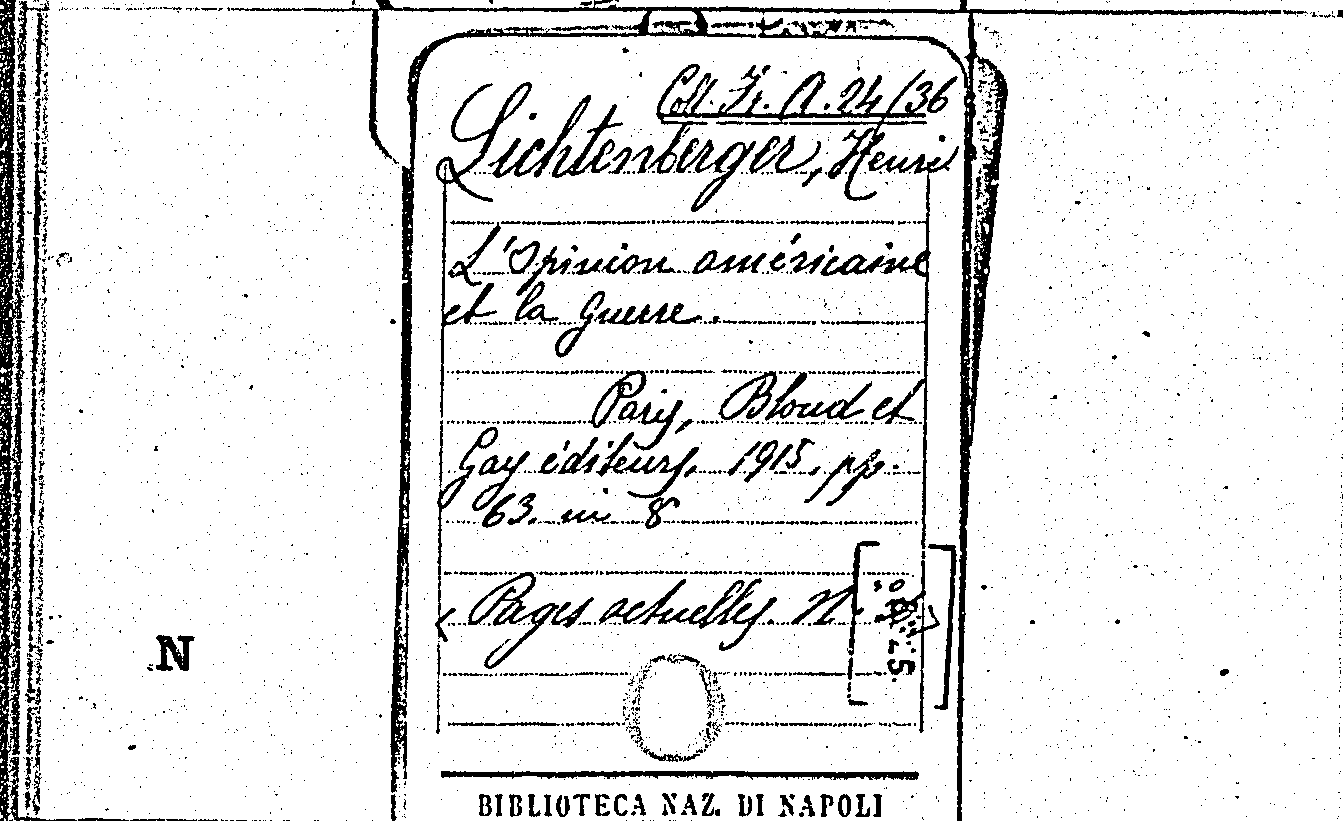 Coll. Fr. A. 24/36
Lichtenberger, Henri
L'Opinion américaine
et la guerre.
Paris, Bloud et
Gay éditeurs, 1915, pp.
63. in 8
< Pages actuelles. N.
N
BIBLIOTECA NAZ. DI NAPOLI